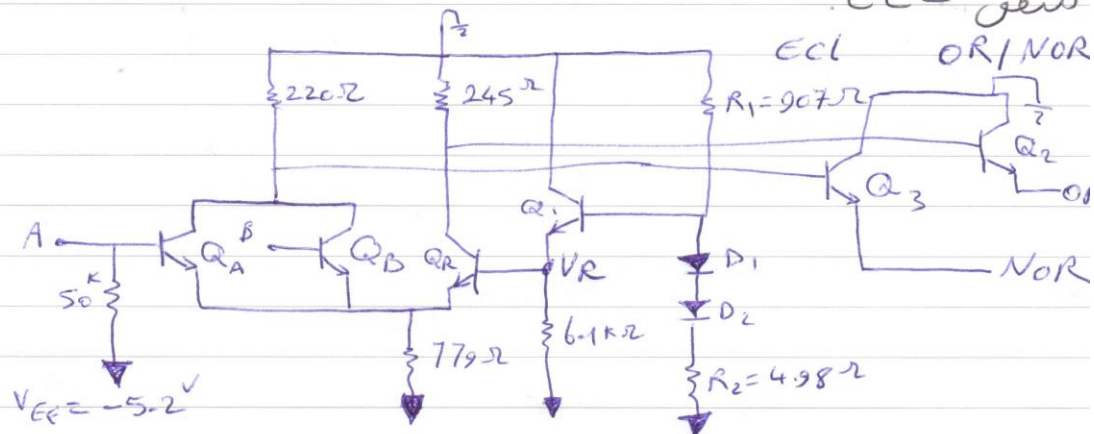 ECL
ECl OR/NOR
220Ω
245Ω
R1=907Ω
Q2
Q3
Q1
A
QA
B
QB
QR
VR
D1
NOR
50K
D2
779Ω
6.1KΩ
R2=4.98Ω
VEE=-5.2V